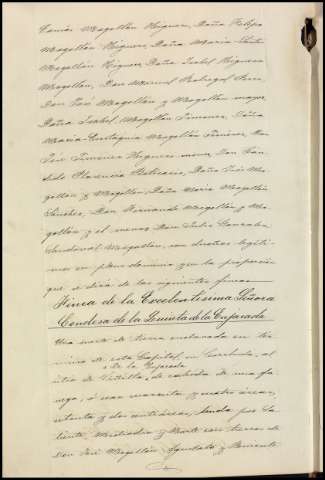 Tomás Magallón Higueras, Doña Felipa
Magallón Higueras, Doña María
Magallón Higueras, Doña Isabel Higueras
Magallón, Don Manuel
Don José Magallón y Magallón mayor,
Doña Isabel Magallón Jimenez, Doña
María Magallón Jimenez, Don
José Jimenez Higueras menor, Don
Plasencia Doña Inés Ma-
gallón y Magallón, Doña María Magallón
Sanchez, Don Fernando Magallón y Ma-
gallón y el menor Don Julio Gonzalez
Sandoval Magallón, son dueños legíti-
mos en pleno dominio y en la proporción
que se dirá de las siguientes fincas
Finca de la Excelentisima Señora
Condesa de la Quinta de la Enjarada
Una suerte de tierra enclavada en tér-
mino de esta Capital, en al
sitio de de cabida de una fa-
nega, ó sean sesenta y cuatro áreas,
y dos centiáreas, linda por Sa-
liente, Mediodía y Norte con tierras de
Don José Magallón, y Poniente